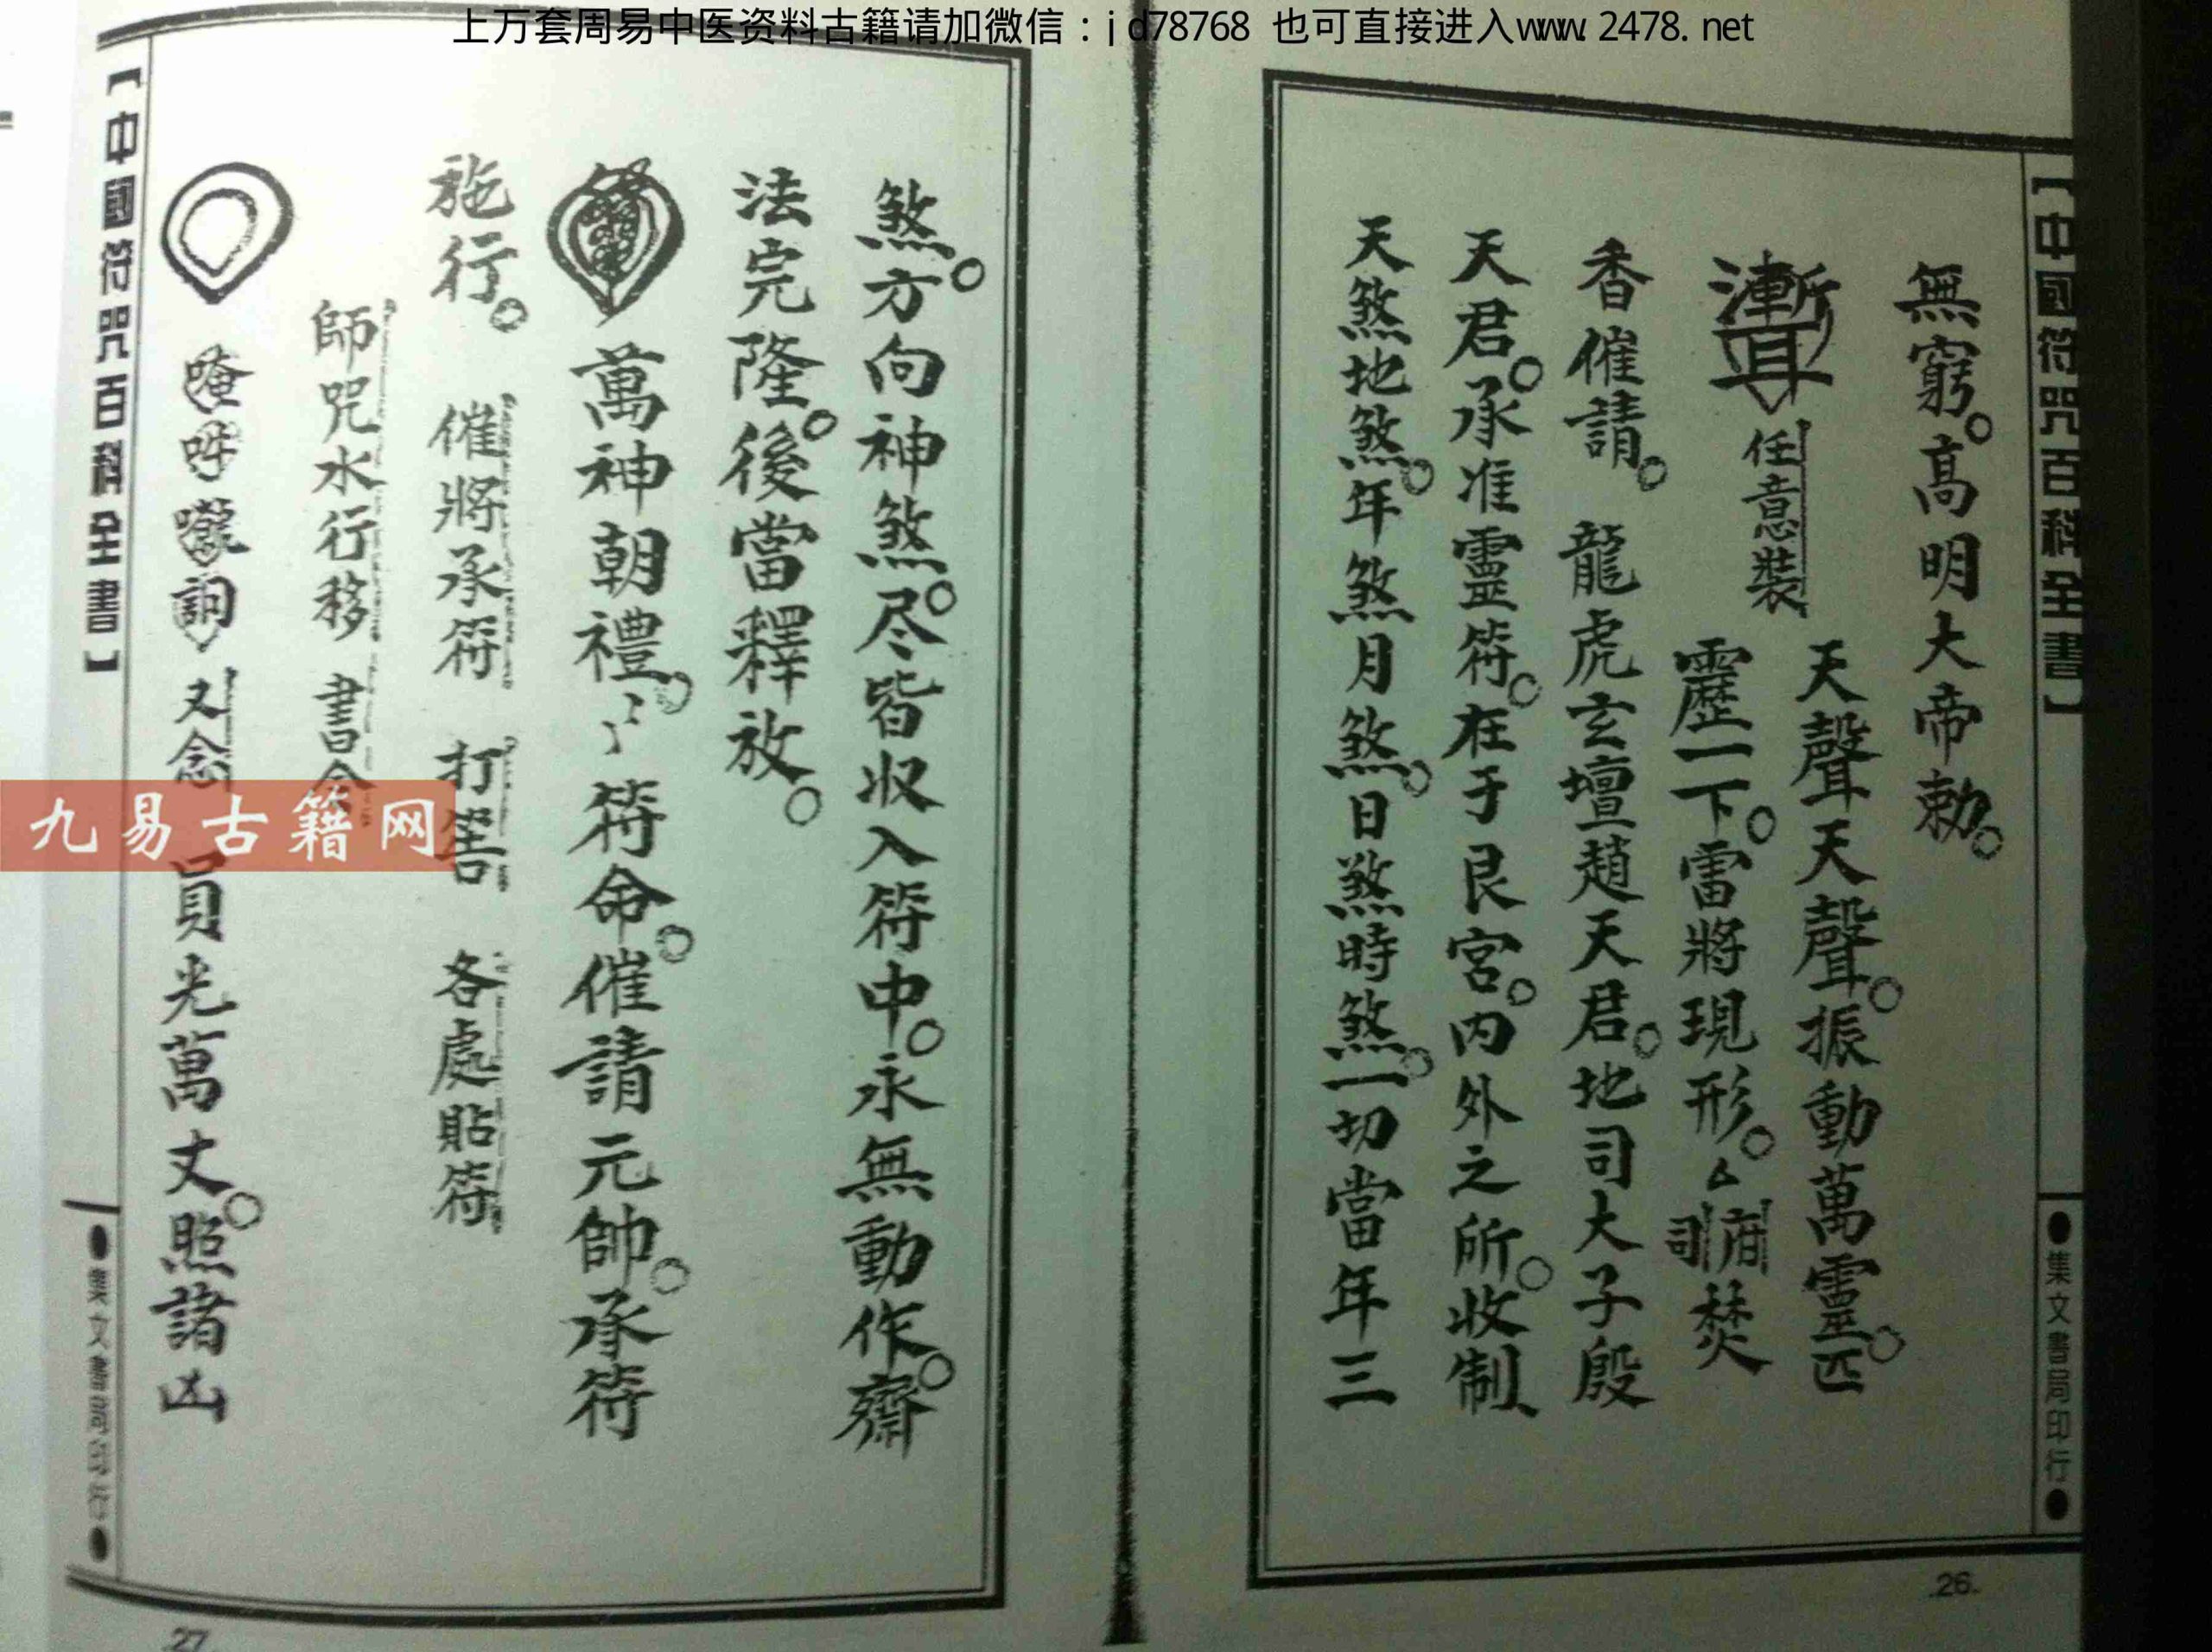 上万套周易中医资料古籍请加微信：jd78768 也可直接进入www.2478.net
【中國符咒百科全書】
●集文書局印行●
無窮。高明大帝勅。
天聲天聲。振動萬靈。匹
任意裝
靂一下。雷將現形。
府司
焚
香催請。 龍虎玄壇趙天君。地司大子殷
天君。承准靈符。在于艮宮。内外之所。收制
天煞地煞。年煞月煞。日煞時煞。一切當年三
26
煞。方向神煞。尽皆収入符中。永無動作。齋
法完隆。後當釋放。
萬神朝禮。 符命。催請元帥。承符
施行。 催將承符 打 各處貼符
師咒水行移 書
又念 員光萬丈。照諸凶
【中國符咒百科全書】
●集文書局印行●
27
九易古籍网